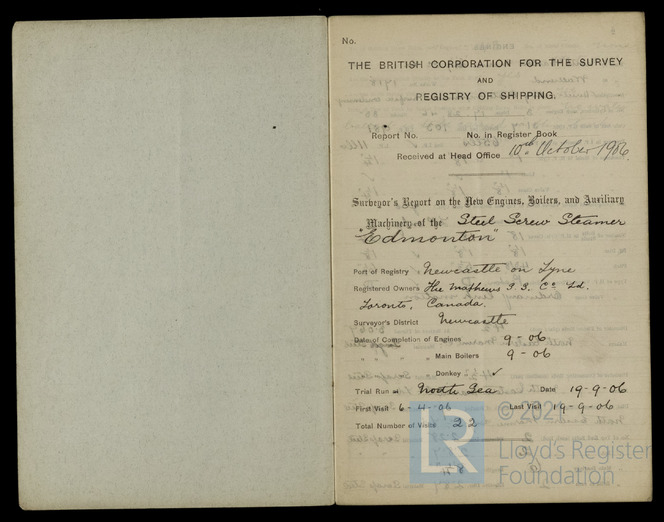 No.
THE BRITISH CORPORATION FOR THE SURVEY
AND
REGISTRY OF SHIPPING.
Report No. No. in Register Book
Received at Head Office 10th October 1906
Surveyor's Report on the New Engines, Boilers, and Auxiliary
Machinery of the Steel Screw Steamer
"Edmonton"
Port of Registry Newcastle on Tyne
Registered Owners The Mathews S.S. Co Ld.
Toronto, Canada.
Surveyor's District Newcastle
Date of Completion of Engines 9-06
" " Main Boilers 9-06
" " Donkey ✓
Trial Run at North Sea Date 19-9-06
First Visit 6-4-06 Last Visit 19-9-06
Total Number of Visits 22
LR
© 2021
Lloyd's Register
Foundation